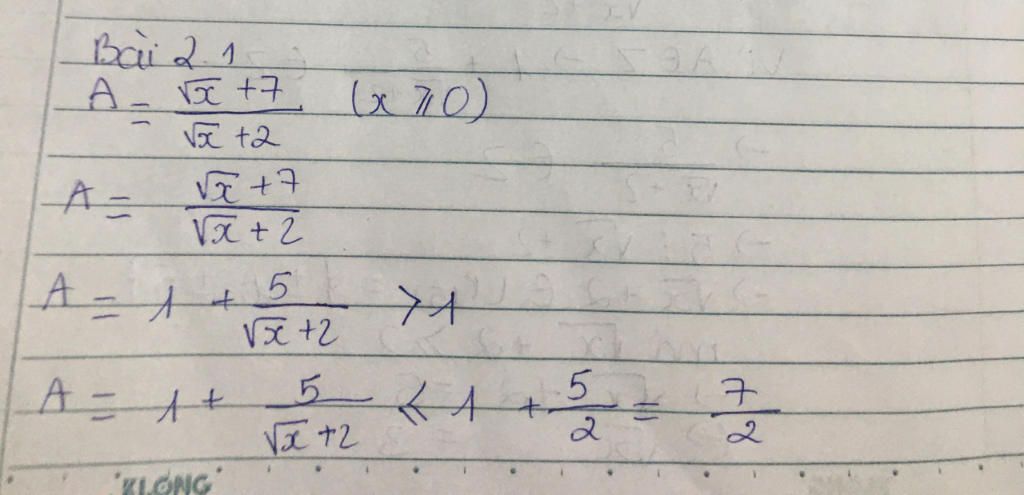 Bài 2.1
A = \frac{\sqrt{x} + 7}{\sqrt{x} + 2} (x ⩾ 0)
A = \frac{\sqrt{x} + 7}{\sqrt{x} + 2}
A = 1 + \frac{5}{\sqrt{x} + 2} > 1
A = 1 + \frac{5}{\sqrt{x} + 2} ⩽ 1 + \frac{5}{2} = \frac{7}{2}
KLONG